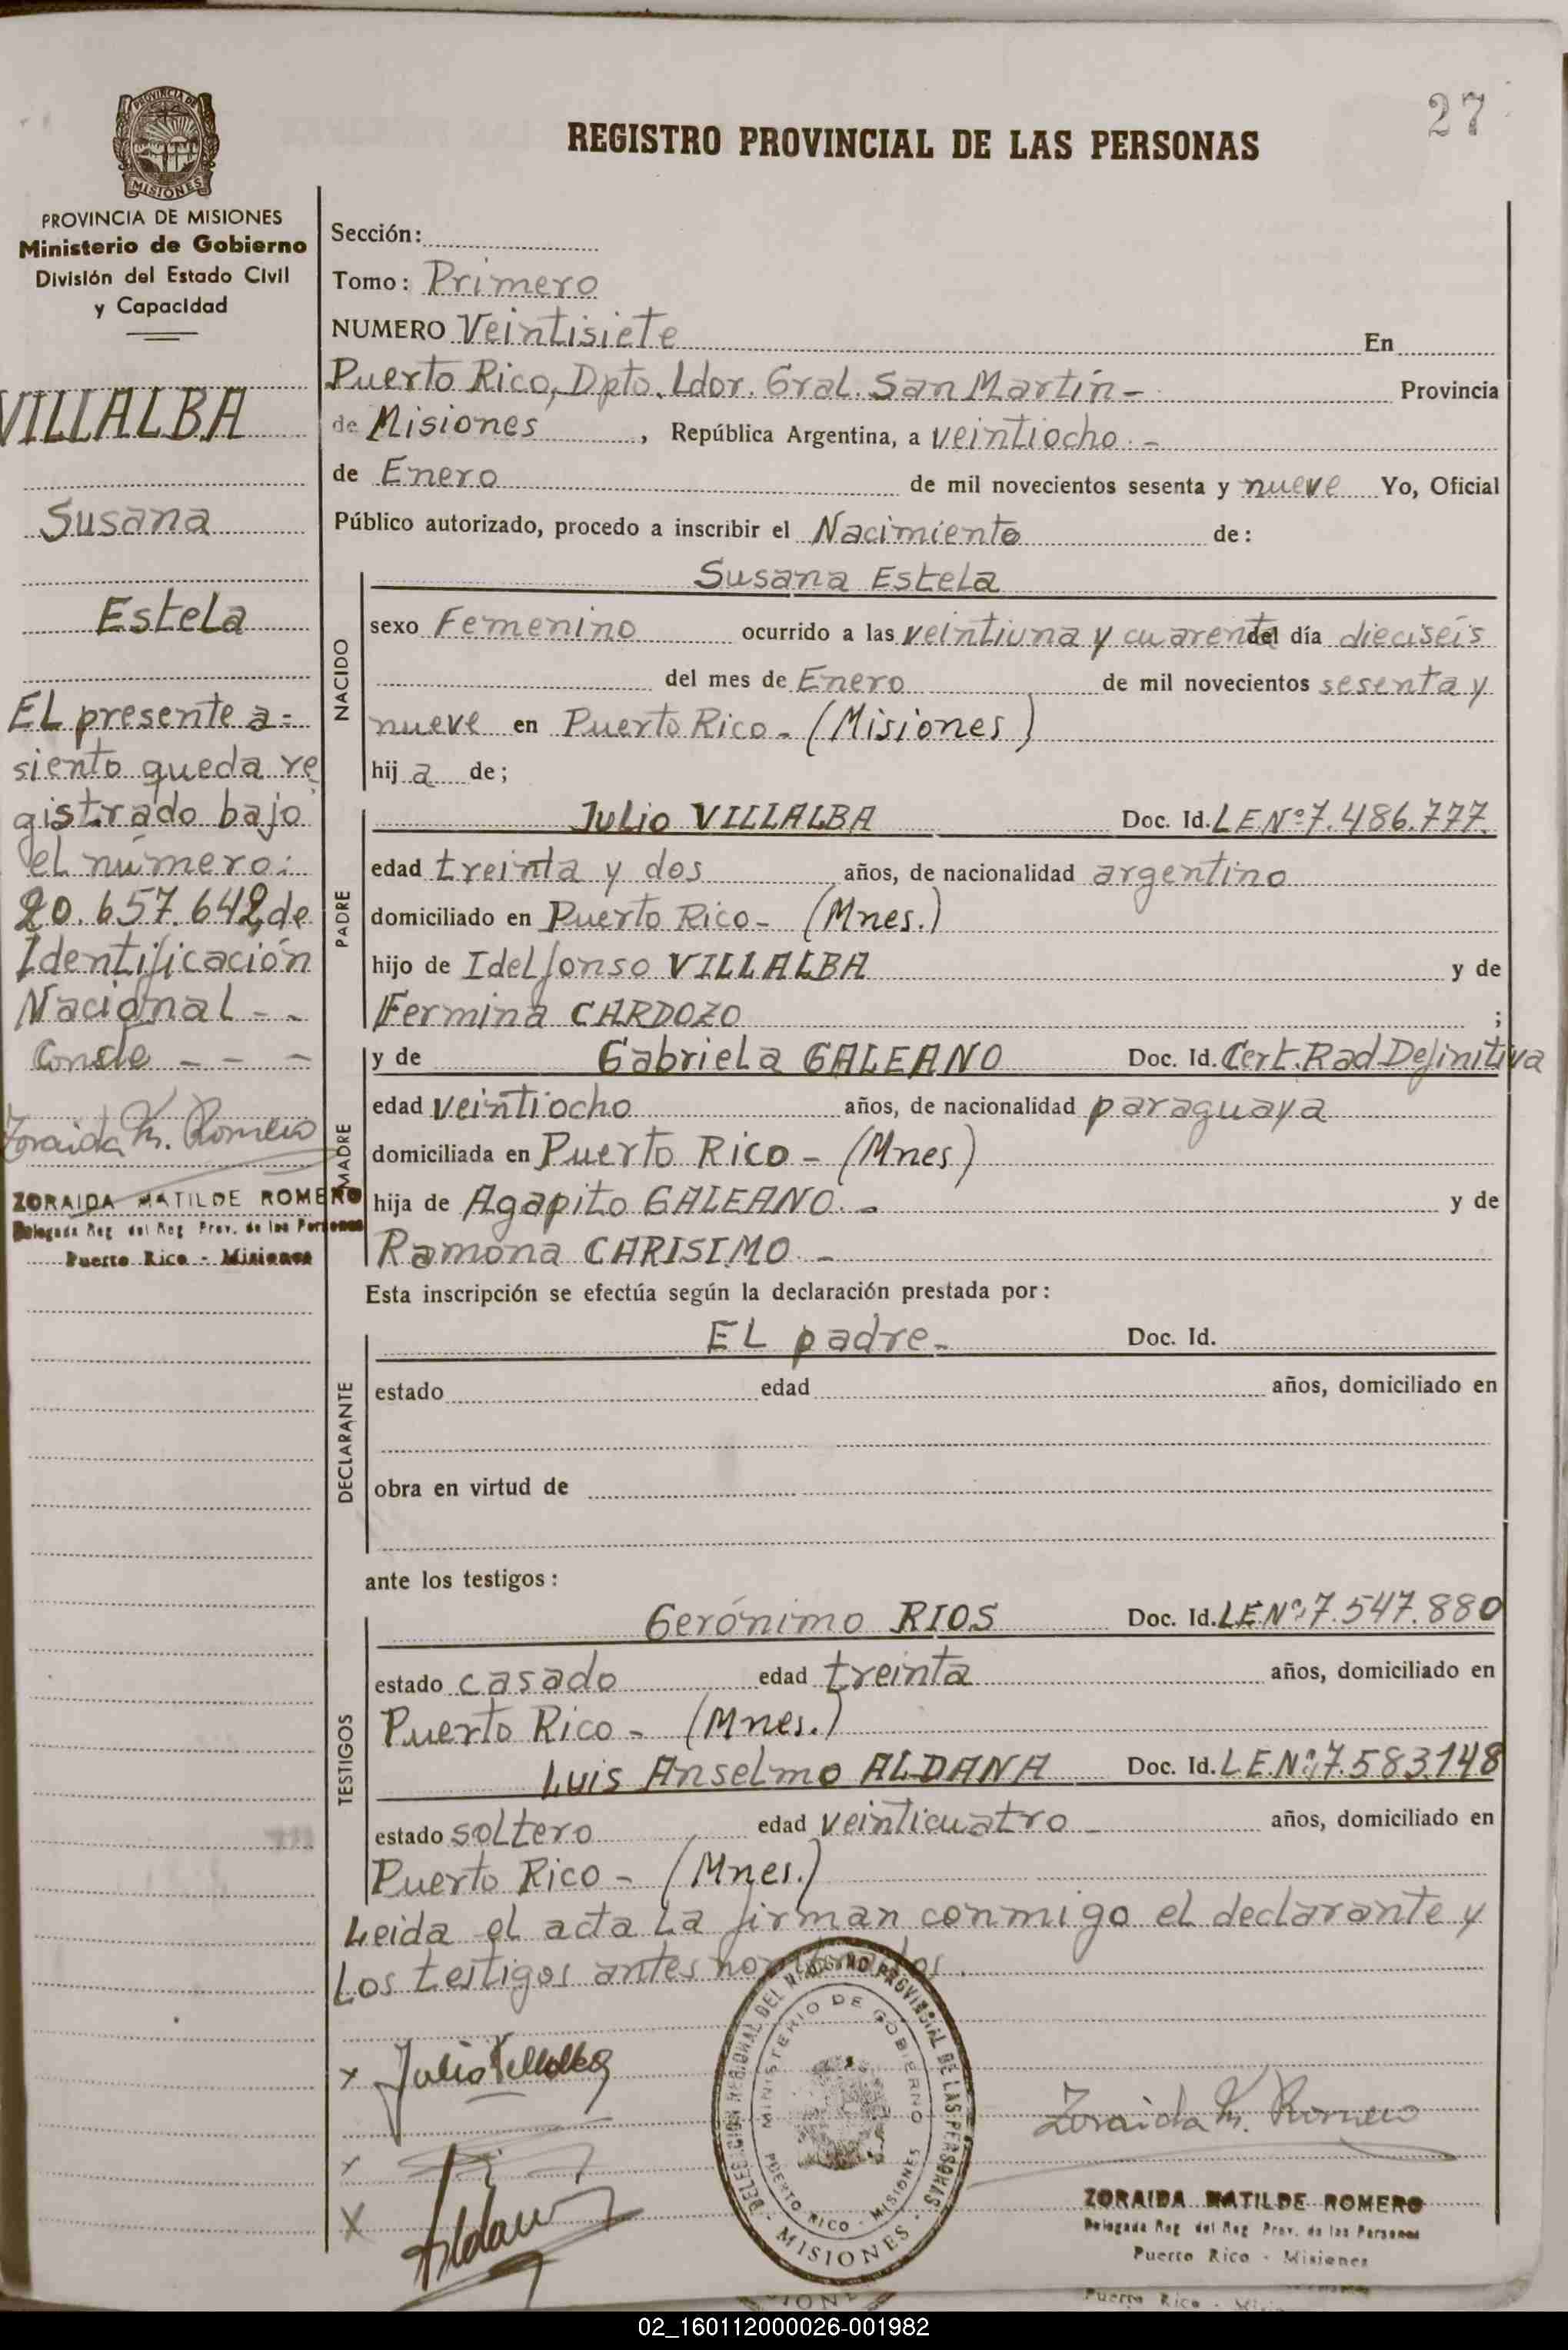 27
REGISTRO PROVINCIAL DE LAS PERSONAS
PROVINCIA DE MISIONES
PROVINCIA DE MISIONES
Ministerio de Gobierno
División del Estado Civil
y Capacidad
VILLALBA
Susana
Estela
EL presente a=
siento queda re
gistrado bajo
el número:
20.657.642, de
Identificación
Nacional - -
Conste - - -
Zoraida M. Romero
ZORAIDA MATILDE ROMERO
Delegada Reg. del Reg. Prov. de las Personas
Puerto Rico - Misiones
Sección:
Tomo: Primero
NUMERO Veintisiete En
Puerto Rico, Dpto. Ldor. Gral. San Martín - Provincia
de Misiones, República Argentina, a veintiocho. -
de Enero de mil novecientos sesenta y nueve Yo, Oficial
Público autorizado, procedo a inscribir el Nacimiento de:
NACIDO
Susana Estela
sexo Femenino ocurrido a las veintiuna y cuarenta del día dieciséis
del mes de Enero de mil novecientos sesenta y
nueve en Puerto Rico - (Misiones)
hija de;
PADRE
Julio VILLALBA Doc. Id. LE Nº 7.486.777.
edad treinta y dos años, de nacionalidad argentino
domiciliado en Puerto Rico - (Mnes.)
hijo de Idelfonso VILLALBA y de
Fermina CARDOZO ;
MADRE
y de Gabriela GALEANO Doc. Id. Cert. Rad Definitiva
edad veintiocho años, de nacionalidad paraguaya
domiciliada en Puerto Rico - (Mnes)
hija de Agapito GALEANO. - y de
Ramona CARISIMO -
Esta inscripción se efectúa según la declaración prestada por:
DECLARANTE
EL padre - Doc. Id.
estado edad años, domiciliado en
obra en virtud de
ante los testigos:
TESTIGOS
Gerónimo RIOS Doc. Id. LE Nº 7.547.880
estado casado edad treinta años, domiciliado en
Puerto Rico - (Mnes.)
Luis Anselmo ALDANA Doc. Id. L.E.Nº 7.583.148
estado soltero edad veinticuatro - años, domiciliado en
Puerto Rico - (Mnes.)
Leida el acta La firman conmigo el declarante y
Los testigos antes nombrados.
x Julio Villalba
x
x Aldana
DELEGACION REGIONAL DEL REGISTRO PROVINCIAL DE LAS PERSONAS
MINISTERIO DE GOBIERNO
PUERTO RICO - MISIONES
- MISIONES -
Zoraida M. Romero
ZORAIDA MATILDE ROMERO
Delegada Reg. del Reg. Prov. de las Personas
Puerto Rico - Misiones
Puerto Rico -
02_160112000026-001982